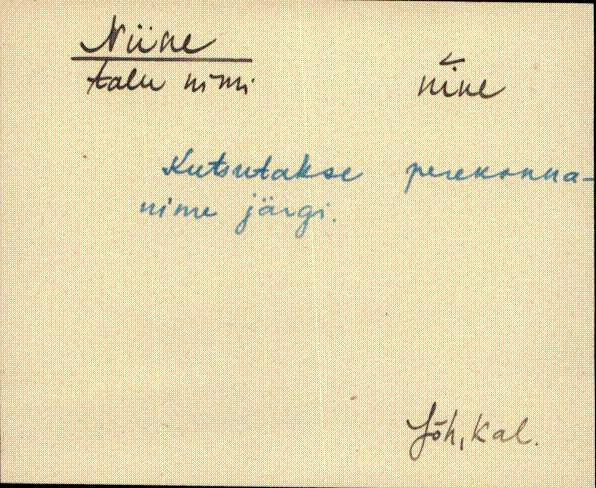 Niine
talu nimi
nine
Kutsutakse perekonna-
nime järgi.
Jõh, Kal.